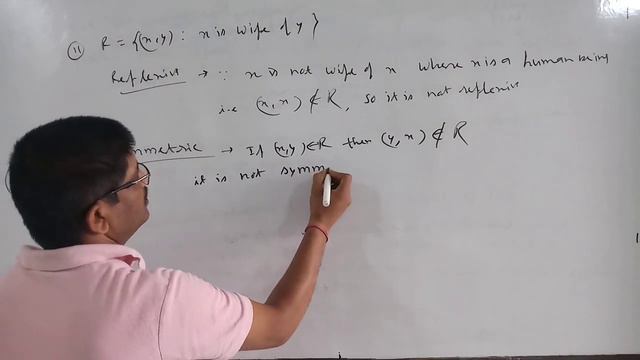 (ii) R = {(x,y) : x is wife of y}
Reflexive → ∵ x is not wife of x where x is a human being
i.e (x, x) ∉ R, so it is not reflexive
mmetric → If (x,y) ∈ R then (y, x) ∉ R
it is not symm